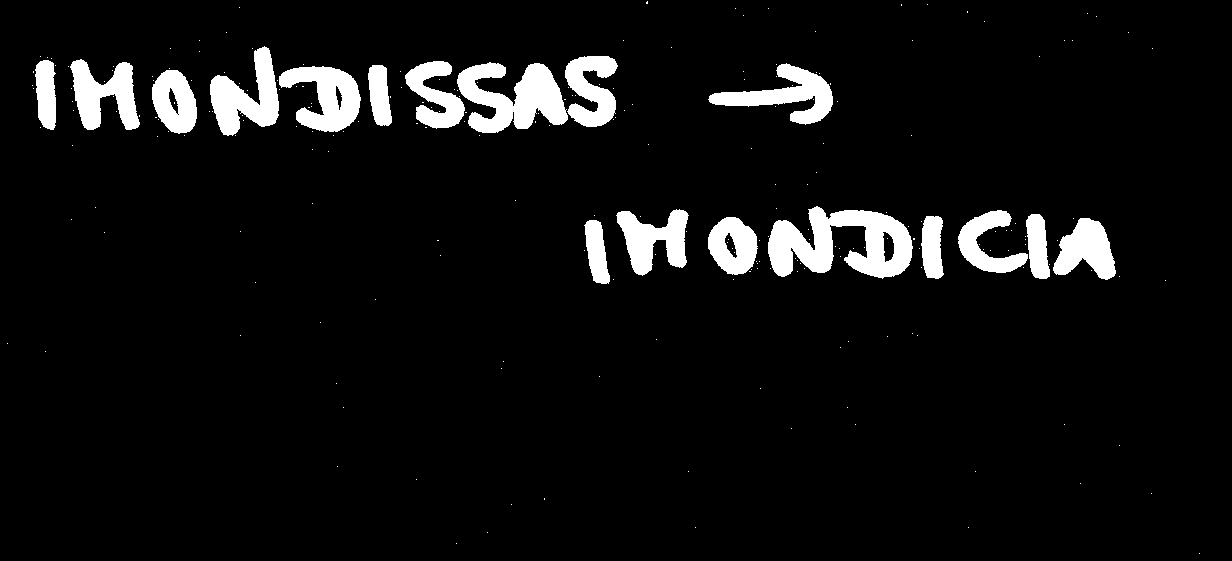 IMONDISSAS →
IMONDICIA